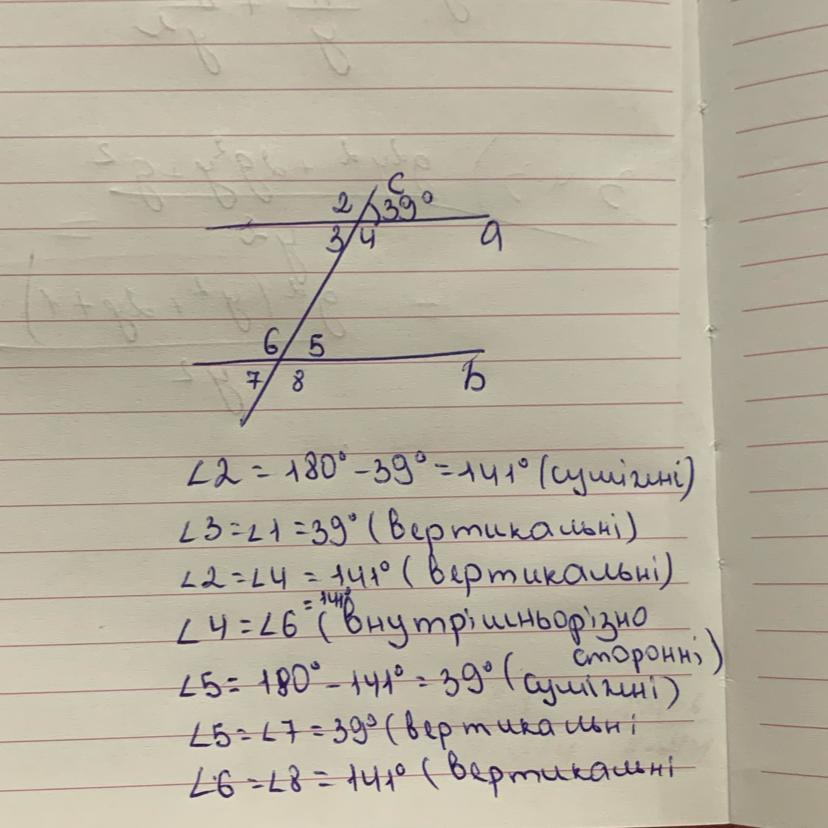 c
2 39°
3 4 a
6 5
7 8 b
∠2 = 180° - 39° = 141° (суміжні)
∠3 = ∠1 = 39° (вертикальні)
∠2 = ∠4 = 141° (вертикальні)
∠4 = ∠6 = 141° (внутрішньорізно
сторонні)
∠5 = 180° - 141° = 39° (суміжні)
∠5 = ∠7 = 39° (вертикальні
∠6 = ∠8 = 141° (вертикальні